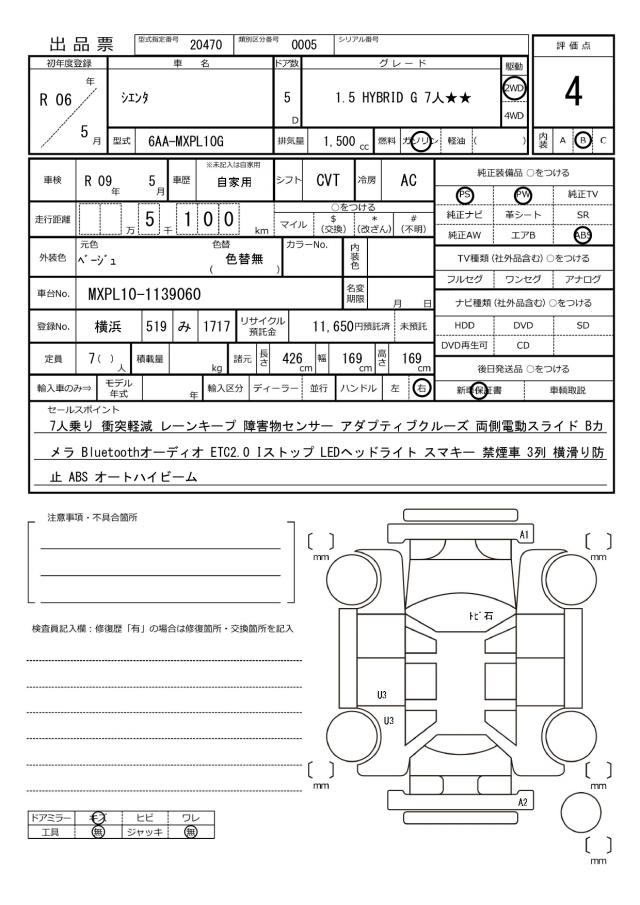 出品票 型式指定番号 20470 類別区分番号 0005 シリアル番号
評価点
4
内装 A B C
初年度登録 車名 ドア数 グレード 駆動
R 06 年 5 月 シエンタ 5 D 1.5 HYBRID G 7人★★ 2WD 4WD
型式 6AA-MXPL10G 排気量 1,500 cc 燃料 ガソリン 軽油 ( )
車検 R 09 年 5 月 車歴 ※未記入は自家用 自家用 シフト CVT 冷房 AC
走行距離 万 5 千 1 0 0 km ○をつける マイル $(交換) *(改ざん) #(不明)
外装色 元色 ベージュ 色替 ( 色替無 ) カラーNo. 内装色
車台No. MXPL10-1139060 名変期限 月 日
登録No. 横浜 519 み 1717 リサイクル預託金 11,650円預託済 未預託
定員 7( )人 積載量 kg 諸元 長さ 426 cm 幅 169 cm 高さ 169 cm
輸入車のみ⇒ モデル年式 年 輸入区分 ディーラー 並行 ハンドル 左 右
純正装備品 ○をつける
PS PW 純正TV
純正ナビ 革シート SR
純正AW エアB ABS
TV種類(社外品含む)○をつける
フルセグ ワンセグ アナログ
ナビ種類(社外品含む)○をつける
HDD DVD SD
DVD再生可 CD
後日発送品 ○をつける
新車保証書 車輌取説
セールスポイント
7人乗り 衝突軽減 レーンキープ 障害物センサー アダプティブクルーズ 両側電動スライド Bカ
メラ Bluetoothオーディオ ETC2.0 Iストップ LEDヘッドライト スマキー 禁煙車 3列 横滑り防
止 ABS オートハイビーム
注意事項・不具合箇所
検査員記入欄：修復歴「有」の場合は修復箇所・交換箇所を記入
ドアミラー キズ ヒビ ワレ
工具 無 ジャッキ 無
A1
mm
mm
トビ石
U3
U3
mm
mm
A2
mm